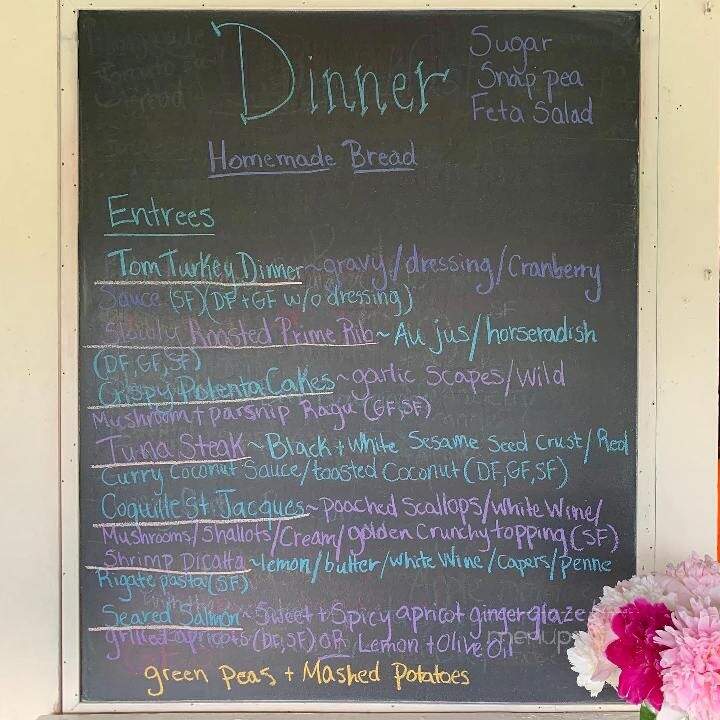 Dinner
Sugar
Snap pea
Feta Salad
Homemade Bread
Entrees
Tom Turkey Dinner~gravy/dressing/Cranberry
Sauce (SF)(DF+GF w/o dressing)
Roasted Prime Rib~Au jus/horseradish
(DF,GF,SF)
Crispy Polenta Cakes~garlic Scapes/wild
Mushroom+parsnip Ragu (GF,SF)
Tuna Steak~Black+white Sesame Seed Crust/Red
Curry Coconut Sauce/toasted Coconut (DF,GF,SF)
Coquille St. Jacques~poached Scallops/white Wine/
Mushrooms/Shallots/Cream/golden Crunchy topping (SF)
Shrimp Picatta~lemon/butter/white Wine/Capers/penne
Rigate pasta (SF)
Seared Salmon~Sweet+Spicy apricot ginger glaze
grilled apricots (DF,SF) OR Lemon+Olive Oil
green Peas + Mashed Potatoes